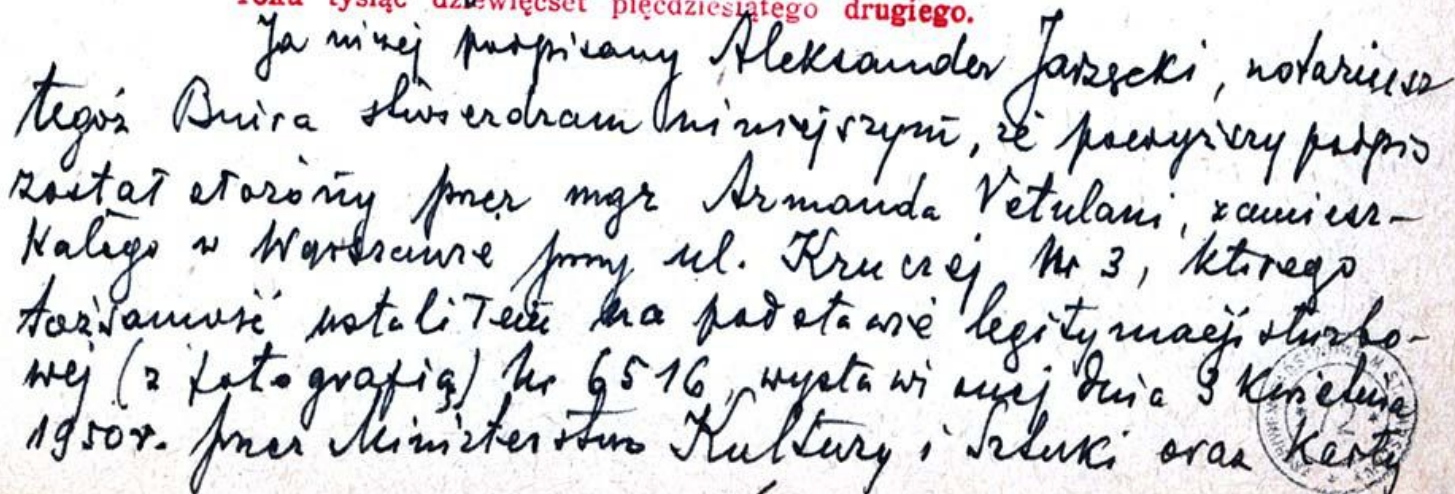 roku tysiąc dziewięćset pięćdziesiątego drugiego.
Ja niżej podpisany Aleksander Jarzęcki, notariusz
tegoż Biura stwierdzam niniejszym, że powyższy podpis
został złożony przez mgr Armanda Vetulani, zamiesz-
kałego w Warszawie przy ul. Kruczej Nr 3, którego
tożsamość ustaliłem na podstawie legitymacji służbo-
wej (z fotografią) Nr 6516, wystawionej dnia 3 kwietnia
1950 r. przez Ministerstwo Kultury i Sztuki oraz karty